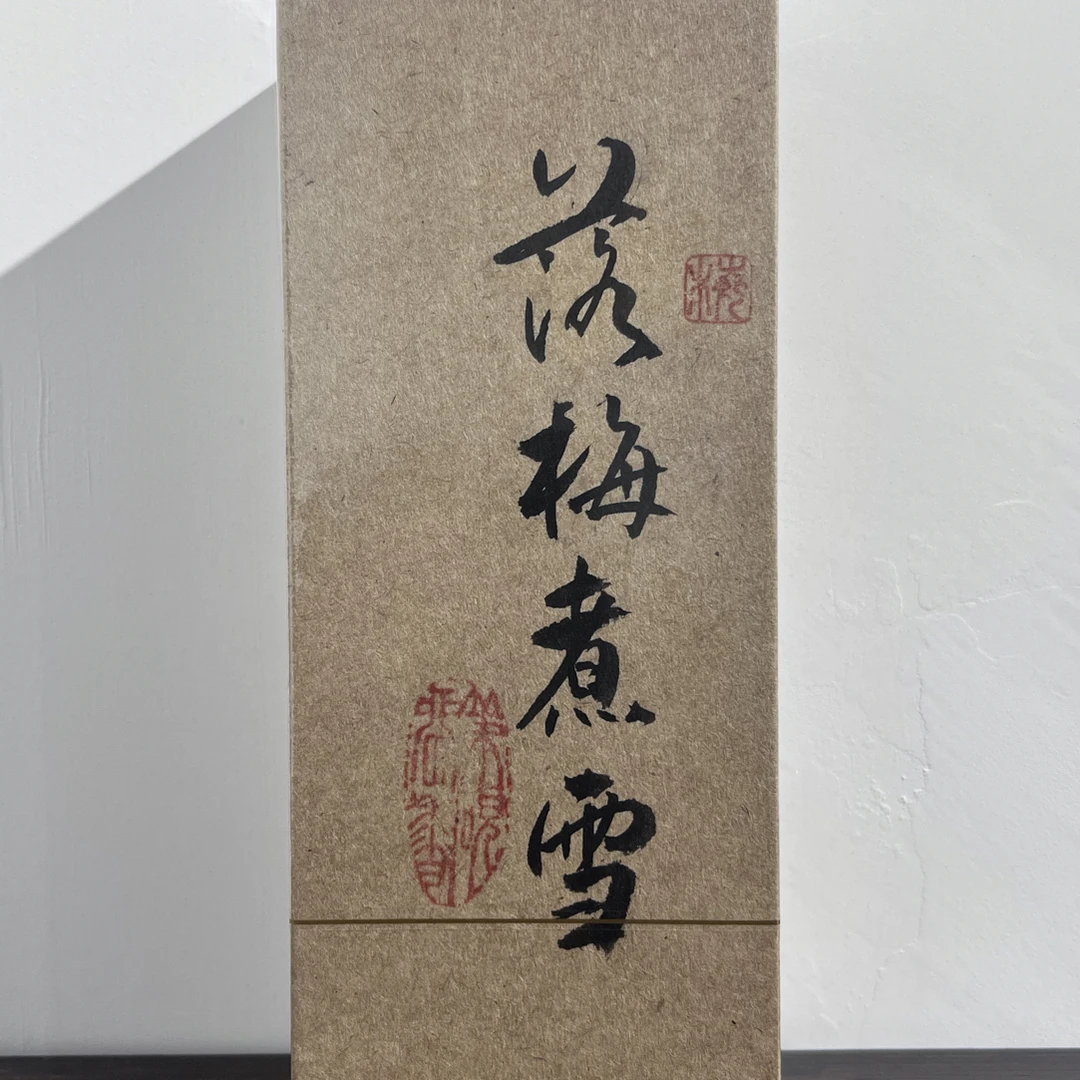 落梅煮雪